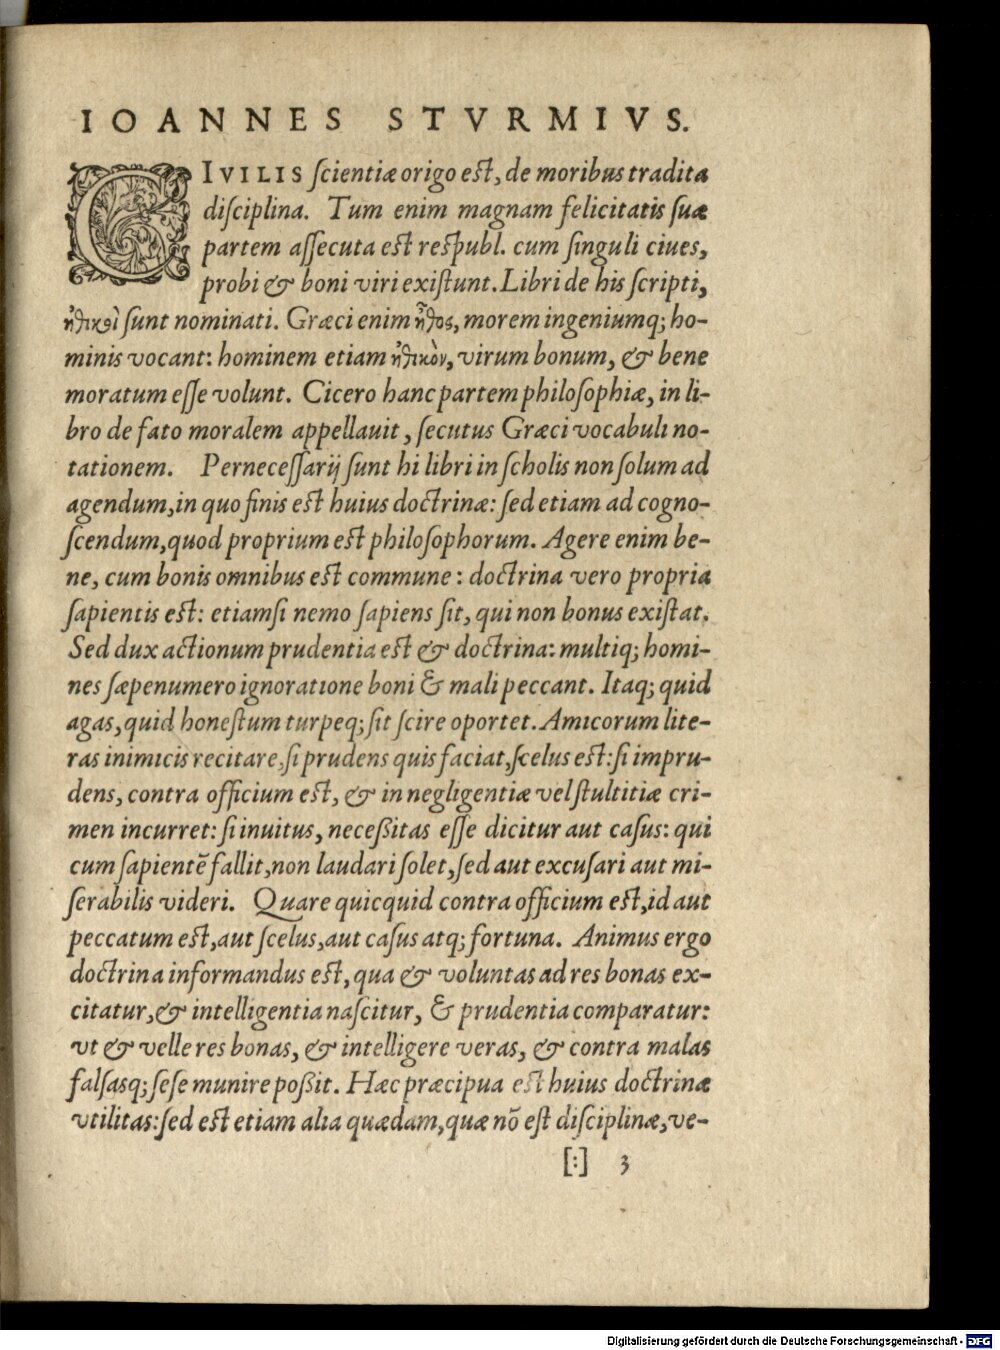 IOANNES STVRMIVS.
CIVILIS ſcientiæ origo eſt, de moribus tradita
diſciplina. Tum enim magnam felicitatis ſuæ
partem aſſecuta eſt reſpubl. cum ſinguli ciues,
probi & boni viri exiſtunt. Libri de his ſcripti,
ἠθικοὶ ſunt nominati. Græci enim ἦθος, morem ingeniumq; ho-
minis vocant: hominem etiam ἠθικὸν, virum bonum, & bene
moratum eſſe volunt. Cicero hanc partem philoſophiæ, in li-
bro de fato moralem appellauit, ſecutus Græci vocabuli no-
tationem. Perneceſſarij ſunt hi libri in ſcholis non ſolum ad
agendum, in quo finis eſt huius doctrinæ: ſed etiam ad cogno-
ſcendum, quod proprium eſt philoſophorum. Agere enim be-
ne, cum bonis omnibus eſt commune: doctrina vero propria
ſapientis eſt: etiamſi nemo ſapiens ſit, qui non bonus exiſtat.
Sed dux actionum prudentia eſt & doctrina: multiq; homi-
nes ſæpenumero ignoratione boni & mali peccant. Itaq; quid
agas, quid honeſtum turpeq; ſit ſcire oportet. Amicorum lite-
ras inimicis recitare, ſi prudens quis faciat, ſcelus eſt: ſi impru-
dens, contra officium eſt, & in negligentiæ vel ſtultitiæ cri-
men incurret: ſi inuitus, neceßitas eſſe dicitur aut caſus: qui
cum ſapientē fallit, non laudari ſolet, ſed aut excuſari aut mi-
ſerabilis videri. Quare quicquid contra officium eſt, id aut
peccatum eſt, aut ſcelus, aut caſus atq; fortuna. Animus ergo
doctrina informandus eſt, qua & voluntas ad res bonas ex-
citatur, & intelligentia naſcitur, & prudentia comparatur:
vt & velle res bonas, & intelligere veras, & contra malas
falſasq; ſeſe munire poßit. Hæc præcipua eſt huius doctrinæ
vtilitas: ſed eſt etiam alia quædam, quæ nō eſt diſciplinæ, ve-
[:] 3
Digitalisierung gefördert durch die Deutsche Forschungsgemeinschaft - DFG